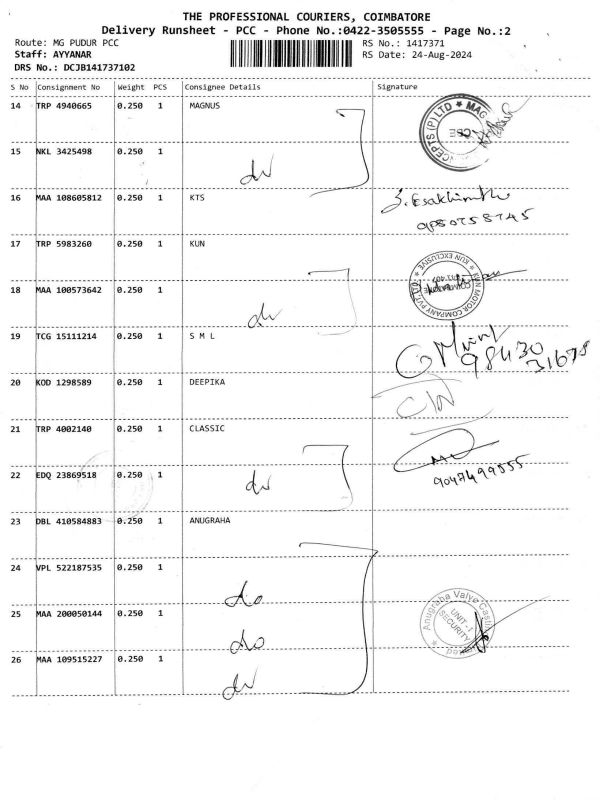 THE PROFESSIONAL COURIERS, COIMBATORE
Delivery Runsheet - PCC - Phone No.:0422-3505555 - Page No.:2
Route: MG PUDUR PCC RS No.: 1417371
Staff: AYYANAR RS Date: 24-Aug-2024
DRS No.: DCJB141737102
S No Consignment No Weight PCS Consignee Details Signature
14 TRP 4940665 0.250 1 MAGNUS
15 NKL 3425498 0.250 1
16 MAA 108605812 0.250 1 KTS
17 TRP 5983260 0.250 1 KUN
18 MAA 100573642 0.250 1
19 TCG 15111214 0.250 1 S M L
98430
31678
20 KOD 1298589 0.250 1 DEEPIKA
21 TRP 4002140 0.250 1 CLASSIC
22 EDQ 23869518 0.250 1
9047499555
23 DBL 410584883 0.250 1 ANUGRAHA
24 VPL 522187535 0.250 1
do
25 MAA 200050144 0.250 1
do
Anugraha Valve
UNIT-I
SECURITY
26 MAA 109515227 0.250 1